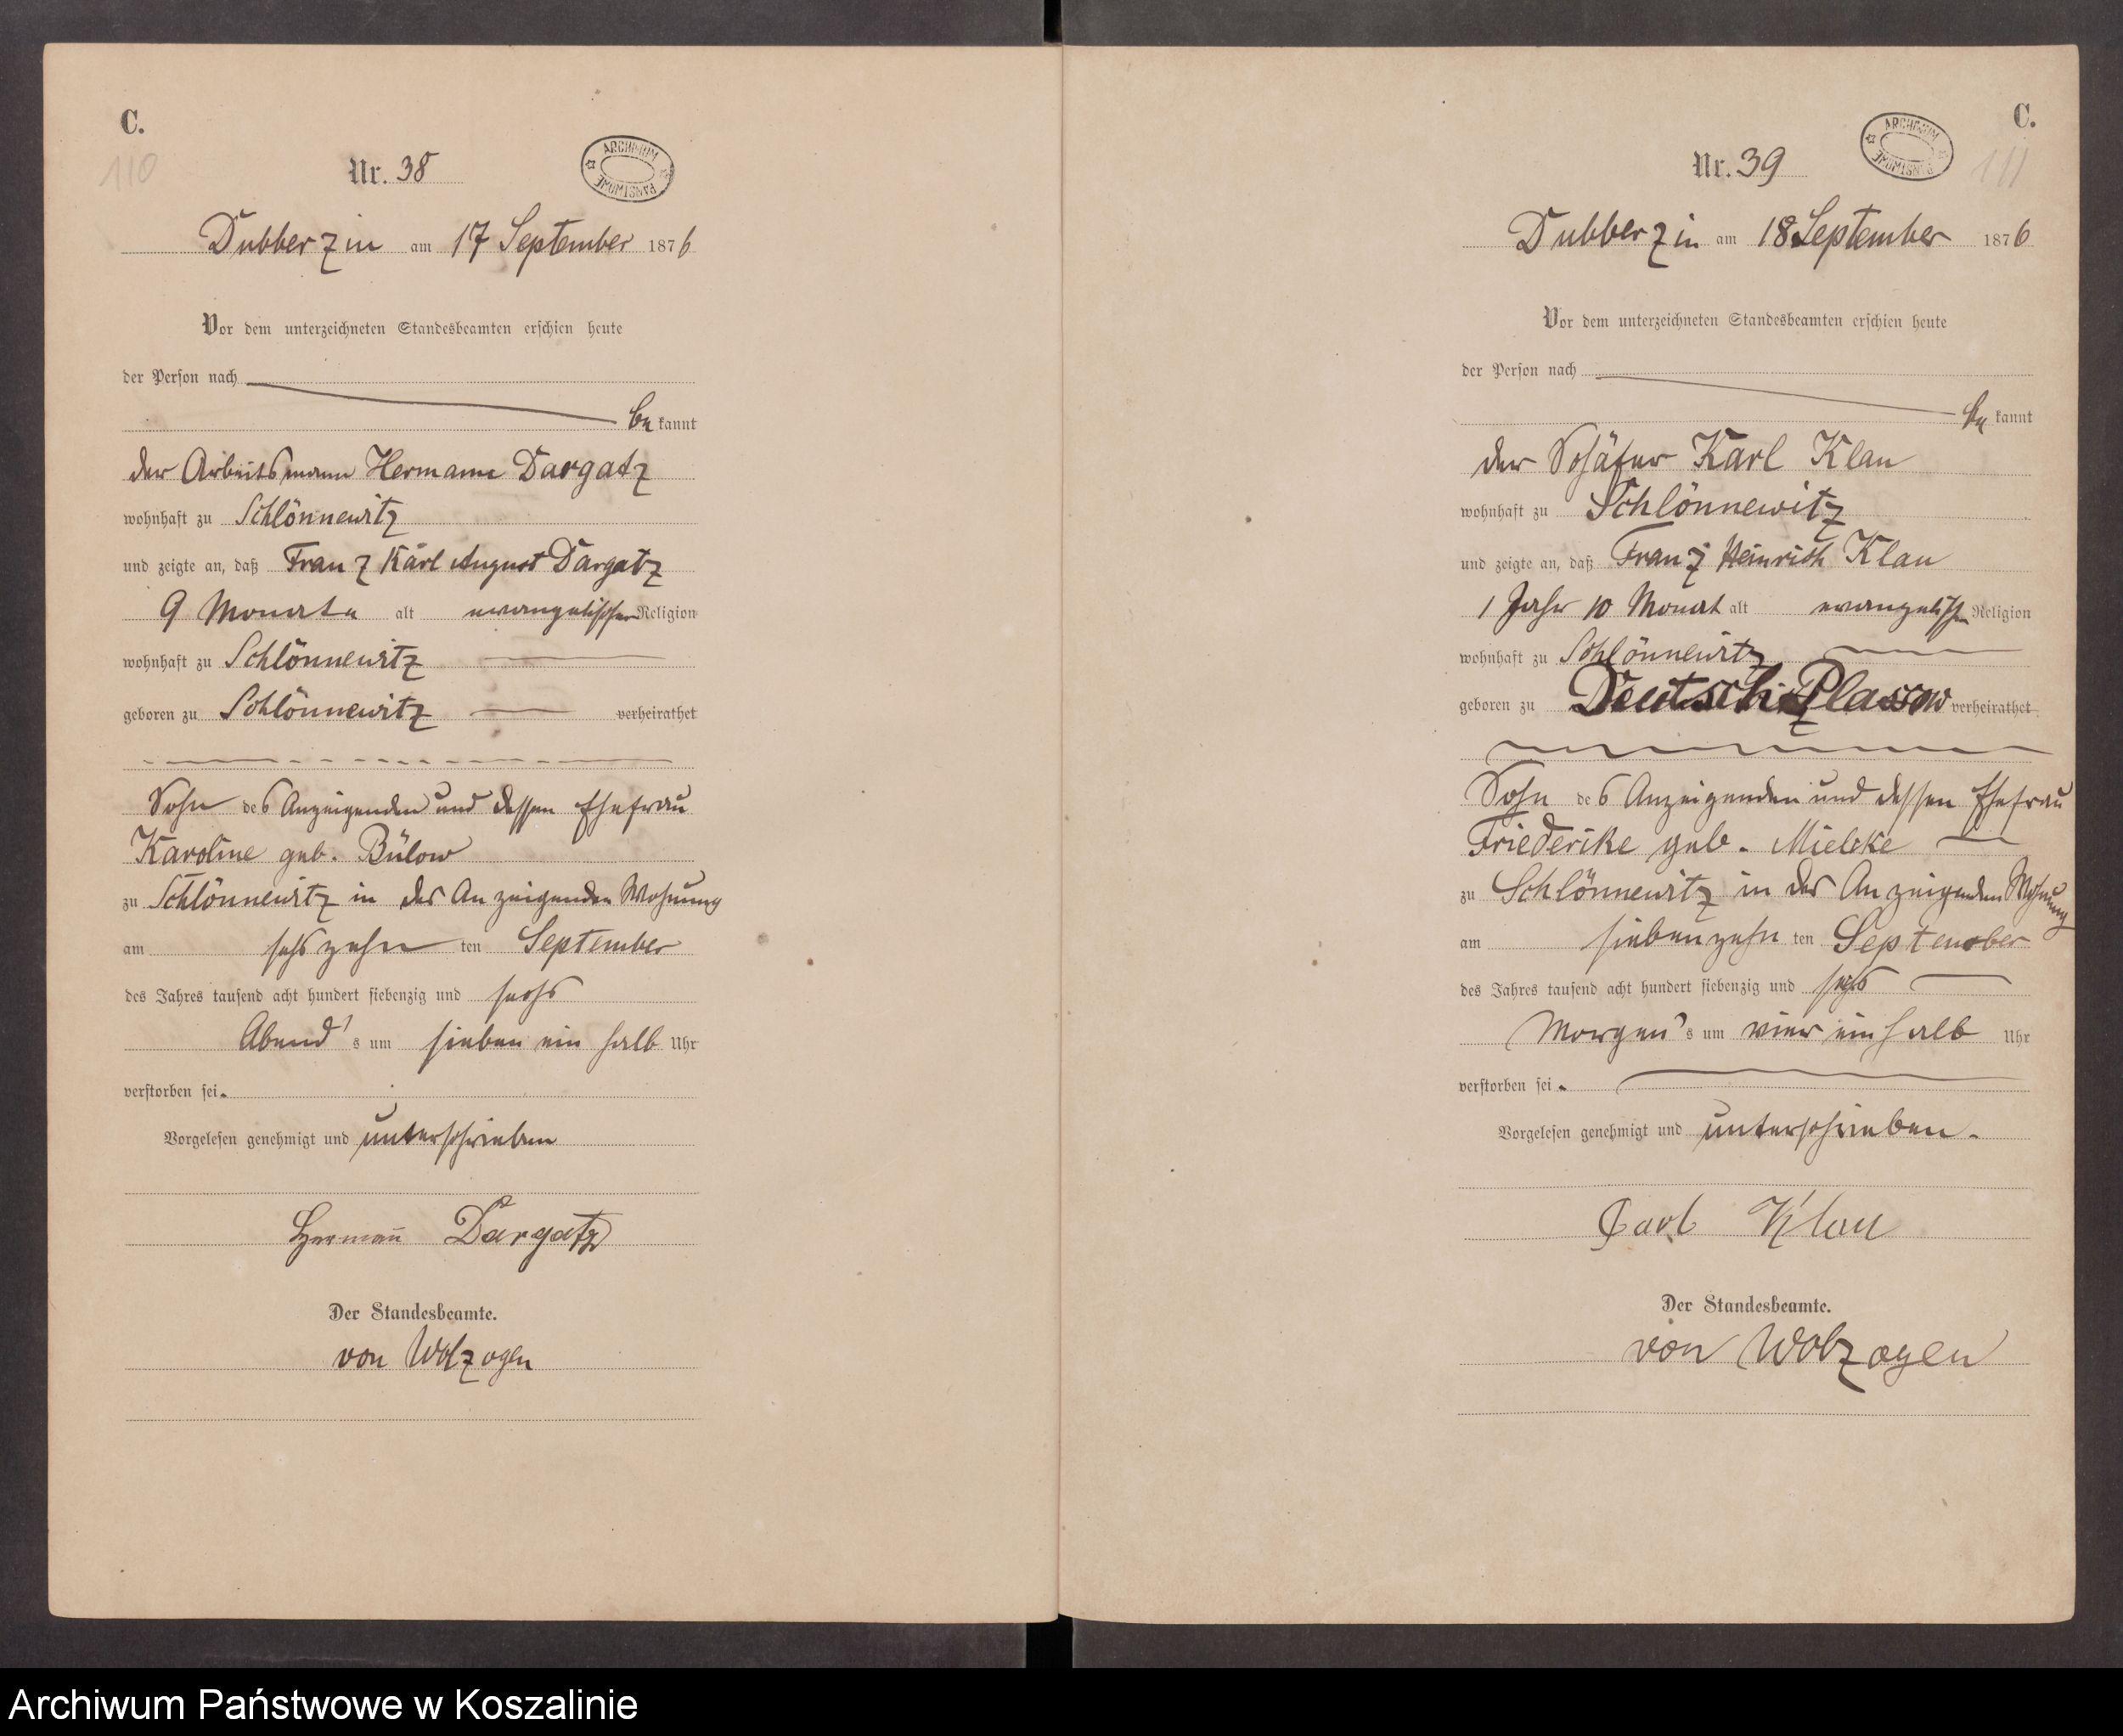 C.
110
Nr. 38
ARCHIWUM PAŃSTWOWE
Dubberzin am 17 September 1876
Vor dem unterzeichneten Standesbeamten erschien heute
der Person nach
be kannt
der Arbeitsmann Hermann Dargatz
wohnhaft zu Schlönnewitz
und zeigte an, daß Franz Karl August Dargatz
9 Monate alt evangelischer Religion
wohnhaft zu Schlönnewitz
geboren zu Schlönnewitz verheirathet
Sohn des Anzeigenden und dessen Ehefrau
Karoline geb. Bülow
zu Schlönnewitz in des Anzeigenden Wohnung
am sechszehn ten September
des Jahres tausend acht hundert siebenzig und sechs
Abend's um sieben ein halb Uhr
verstorben sei.
Vorgelesen genehmigt und unterschrieben
Hermann Dargatz
Der Standesbeamte.
von Wolzogen
C.
111
Nr. 39
ARCHIWUM PAŃSTWOWE
Dubberzin am 18 September 1876
Vor dem unterzeichneten Standesbeamten erschien heute
der Person nach
be kannt
der Schäfer Karl Klau
wohnhaft zu Schlönnewitz
und zeigte an, daß Franz Heinrich Klau
1 Jahr 10 Monat alt evangelischer Religion
wohnhaft zu Schlönnewitz
geboren zu Deutsch Plassow verheirathet
Sohn des Anzeigenden und dessen Ehefrau
Friederike geb. Mielcke
zu Schlönnewitz in des Anzeigenden Wohnung
am siebenzehn ten September
des Jahres tausend acht hundert siebenzig und sechs
Morgen's um vier ein halb Uhr
verstorben sei.
Vorgelesen genehmigt und unterschrieben.
Carl Klau
Der Standesbeamte.
von Wolzogen
Archiwum Państwowe w Koszalinie